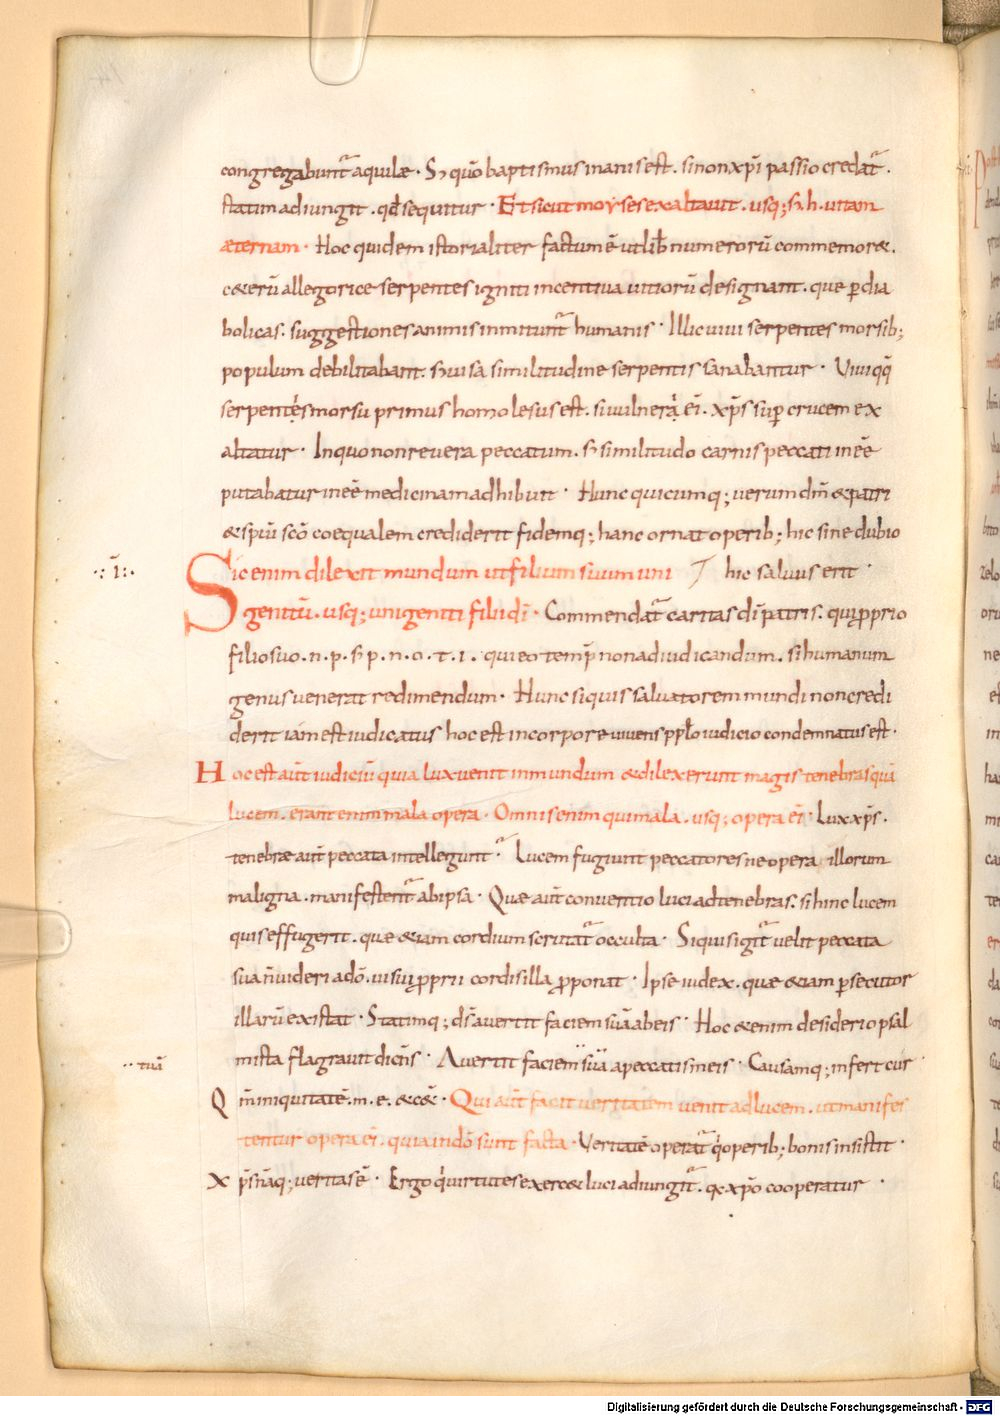 congregabunt᷒ aquilæ · S; quō baptismus inanis est . si non xp̄i passio credat᷒ .
statim adiungit . qd̄ sequitur · Et sicut moyses exaltavit . usq; s; h . vitam
æternam · Hoc quidem istorialiter factum ē ut lib̄ numerorū commemor& .
c&erū allegorice serpentes igniti incentiva vitiorū designant . que p̄ dia
bolicas . suggestiones animis inmitunt᷒ humanis · Illic vivi serpentes morsib;
populum debilitabant . s; visa similitudine serpentis sanabantur · Vivi qq̄
serpentis morsu primus homo lesus est . si vulnerāt ei . xp̄s sup̄ crucem ex
altatur · In quo non revera peccatum . s; similitudo carnis peccati inēē
putabatur inēē medicinam adhibuit · Hunc quicumq; verum dm̄ & patri
& spiū scō coequalem crediderit fidemq; hanc ornat operib; hic sine dubio
·:·ī:· Sic enim dilexit mundum ut filium suum uni hic salvus erit ·
genitū . usq; unigeniti filii dī · Commendat᷒ caritas dī patris . qui p̄prio
filio suo . n . p . s; p . n . o . t . i . qui eo temp̄ non ad iudicandum . s; humanum
genus venerat redimendum · Hunc siquis salvatorem mundi non credi
derit iam est iudicatus hoc est in corpore vivens pp̄lo iudicio condemnatus est ·
Hoc est aūt iudiciū quia lux venit in mundum & dilexerunt magis tenebras quā
lucem . erant enim mala opera · Omnis enim qui mala . usq; opera eī · Lux xp̄s .
tenebræ aūt peccata intellegunt᷒ · Lucem fugiunt peccatores ne opera illorum
maligna . manifestent᷒ ab ipsa · Quæ aūt conventio luci ad tenebras . si hinc lucem
quis effugerit . quæ &iam cordium scrutat᷒ occulta · Siquis igit᷒ velit peccata
sua n̄ videri a dō . visui p̄prii cordis illa p̄ponat · Ipse iudex . quæ &iam p̄secutor
illarū existat · Statimq; ds̄ avertit faciem suā ab eis · Hoc &enim desiderio psal
·· tuā mista flagravit dicn̄s · Avertit faciem suā a peccatis meis · Causamq; infert cur ·
Qm̄ iniquitatē . m . e . & c& · Qui aūt facit veritatem venit ad lucem . ut manifes
tentur opera eī . quia in dō sunt facta · Veritatē operat᷒ q̄ operib; bonis insistit ·
Xp̄s nāq; veritas ē · Ergo q̄ virtutes exerc& luci adiungit᷒ . q; xp̄o cooperatur ·
Digitalisierung gefördert durch die Deutsche Forschungsgemeinschaft · DFG